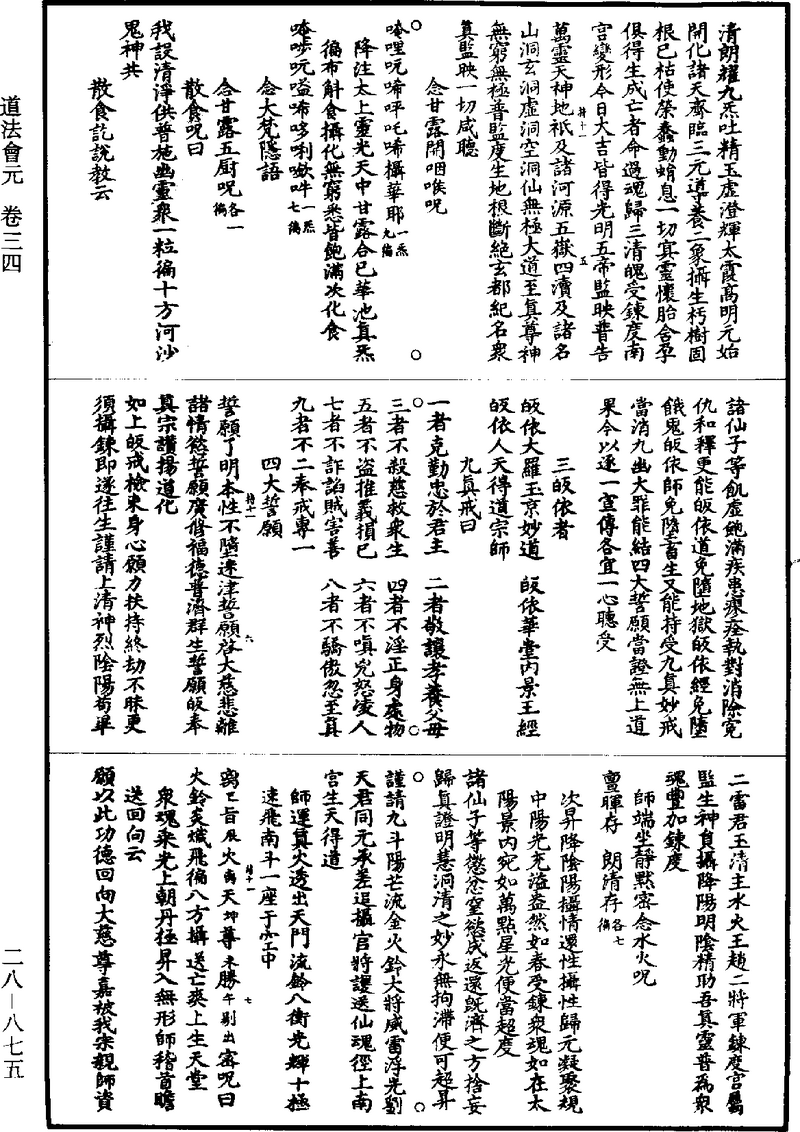 道法會元　卷三四
清朗耀九炁吐精玉虛澄輝太霞高明元始
開化諸天齊臨三元導養二象攝生朽樹固
根已枯使榮蠢動蛸息一切冥靈懷胎含孕
俱得生成亡者命過魂歸三清魄受鍊度南
宮變形今日大吉皆得光明五帝監映普告
萬靈天神地祇及諸河源五嶽四瀆及諸名
山洞玄洞虛洞空洞仙無極大道至真尊神
無窮無極普監度生地根斷絕玄都紀名眾
真監映一切咸聽
念甘露開咽喉呪
唵哩吭唏呼吒唏攝華耶一炁九徧
降注太上靈光天中甘露合已華池真炁
徧布斛食攝化無窮悉皆飽滿次化食
唵㖉吭嗌唏哆唎㰤吽一炁七徧
念大梵隱語
念甘露五厨呪各一徧
散食呪曰
我設清淨供普施幽靈眾一粒徧十方河沙
鬼神共
散食訖說教云
諸仙子等飢虛飽滿疾患瘳痊執對消除冤
仇和釋更能皈依道免墮地獄皈依經免墮
餓鬼皈依師免墮畜生又能持受九真妙戒
當消九幽大罪能結四大誓願當證無上道
果今以逐一宣傳各宜一心聽受
三皈依者
皈依大羅玉京妙道　皈依華堂內景玉經
皈依人天得道宗師
九真戒曰
一者克勤忠於君主　二者敬讓孝養父母
三者不殺慈救眾生　四者不淫正身處物
五者不盜推義損己　六者不嗔兇怒凌人
七者不詐諂賊害善　八者不驕傲忽至真
九者不二奉戒專一
四大誓願
誓願了明本性不墮迷津誓願啓大慈悲離
諸情慾誓願廣修福德普濟群生誓願皈奉
真宗讚揚道化
如上皈戒檢束身心願力扶持終劫不昧更
須攝鍊即遂往生謹請上清神烈陰陽苟畢
二雷君玉清主水火王趙二將軍鍊度宮屬
監生神員攝降陽明陰精助吾真靈普為眾
魂豐加鍊度
師端坐靜默密念水火呪
䆄暉存　朗清存各七徧
次昇降陰陽攝情還性攝性歸元凝聚規
中陽光充溢盎然如春受鍊眾魂如在太
陽景內宛如萬點星光便當超度
諸仙子等懲忿窒慾咸返還旣濟之方捨妄
歸真證明慧洞清之妙永無拘滯便可超昇
謹請九斗陽芒流金火鈴大將威雷浮光劉
天君同元承差追攝官將護送仙魂徑上南
宮生天得道
師運真火透出天門流鈴八衝光輝十極
速飛南斗一座于空中
火鈴炎熾飛徧八方攝送亡爽上生天堂
眾魂乘光上朝丹極昇入無形師稽首瞻
送回向云
願以此功德回向大慈尊嘉被我宗親師資
二八－八七五